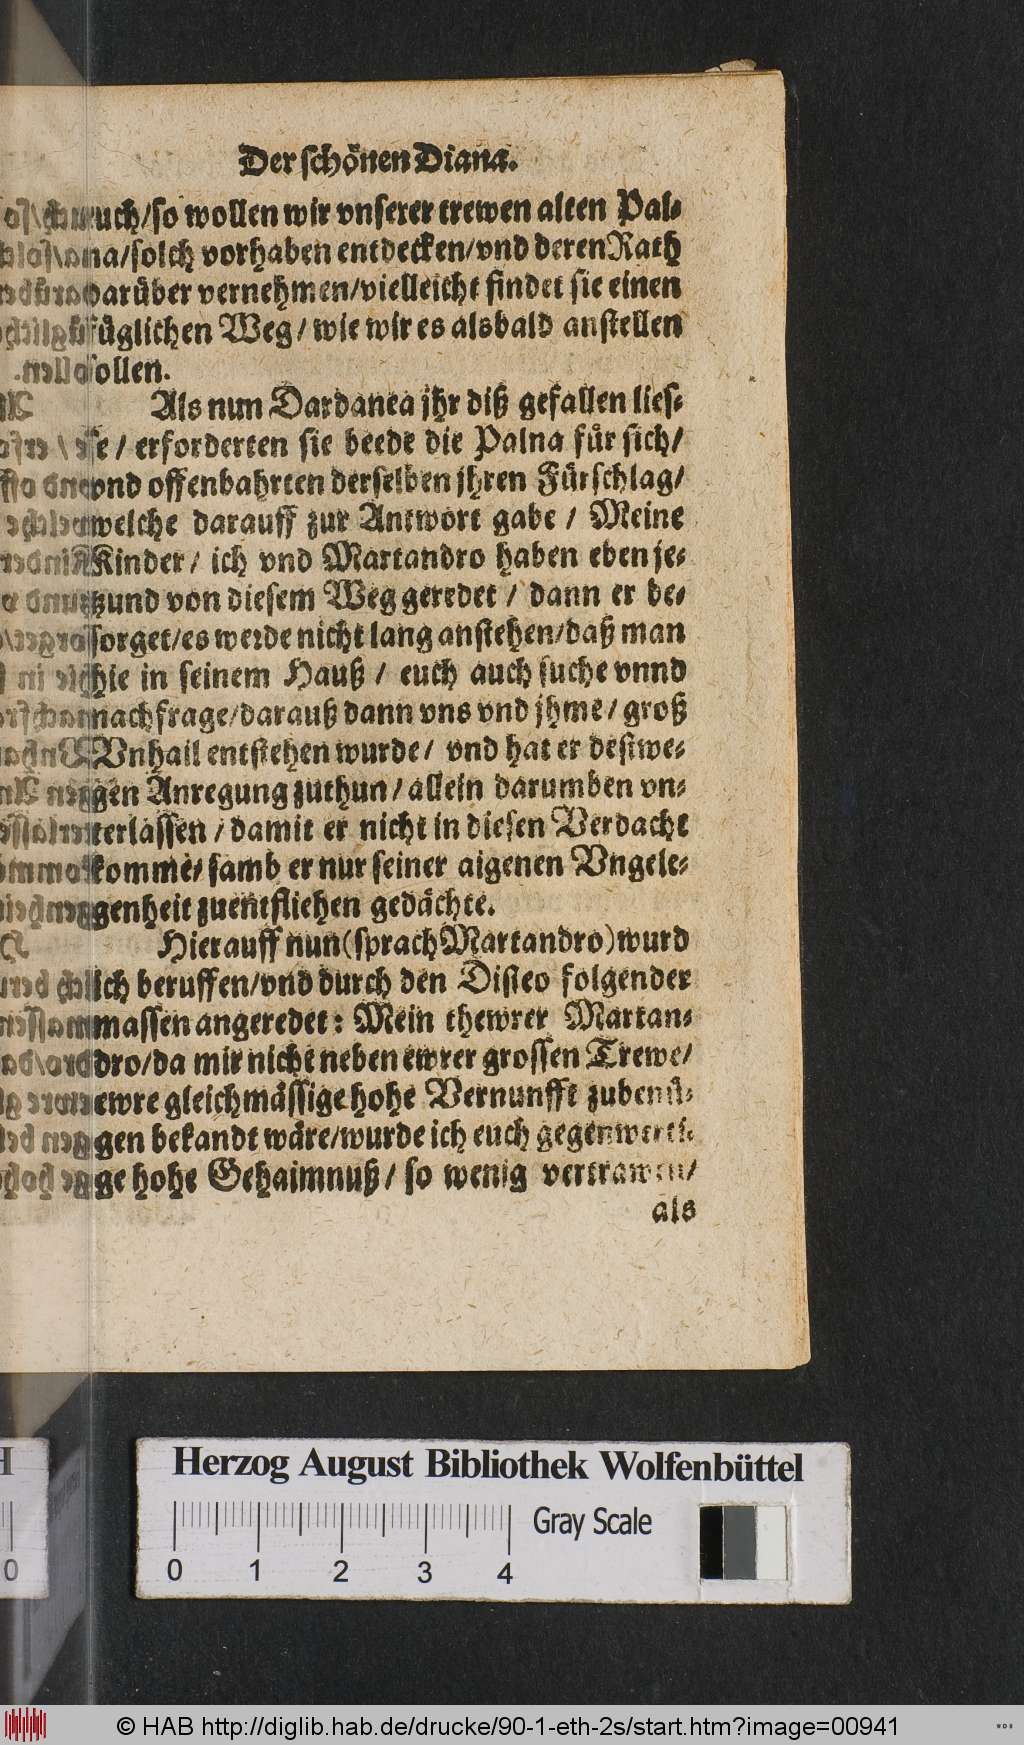 Der schönen Diana.
uch/so wollen wir vnserer trewen alten Pal-
na/solch vorhaben entdecken/vnd deren Rath
darüber vernehmen/vielleicht findet sie einen
füglichen Weg/ wie wir es alsbald anstellen
sollen.
Als nun Dardanea jhr diß gefallen lies-
se/ erforderten sie beede die Palna für sich/
vnd offenbahrten derselben jhren Fürschlag/
welche darauff zur Antwort gabe/ Meine
Kinder/ ich vnd Martandro haben eben je-
tzund von diesem Weg geredet/ dann er be-
sorget/es werde nicht lang anstehen/daß man
hie in seinem Hauß/ euch auch suche vnnd
nachfrage/darauß dann vns vnd jhme/ groß
Vnhail entstehen wurde/ vnd hat er destwe-
gen Anregung zuthun/ allein darumben vn-
terlassen/damit er nicht in diesen Verdacht
komme/ samb er nur seiner aigenen Vngele-
genheit zuentfliehen gedächte.
Hierauff nun(sprach Martandro)wurd
ich beruffen/vnd durch den Disteo folgender
massen angeredet: Mein thewrer Martan-
dro/da mir nicht neben ewrer grossen Trewe/
ewre gleichmässige hohe Vernunfft zubenü-
gen bekandt wäre/wurde ich euch gegenwerti-
ge hohe Gehaimnuß/ so wenig vertrawen/
als
Herzog August Bibliothek Wolfenbüttel
Gray Scale
0 1 2 3 4
0
© HAB http://diglib.hab.de/drucke/90-1-eth-2s/start.htm?image=00941